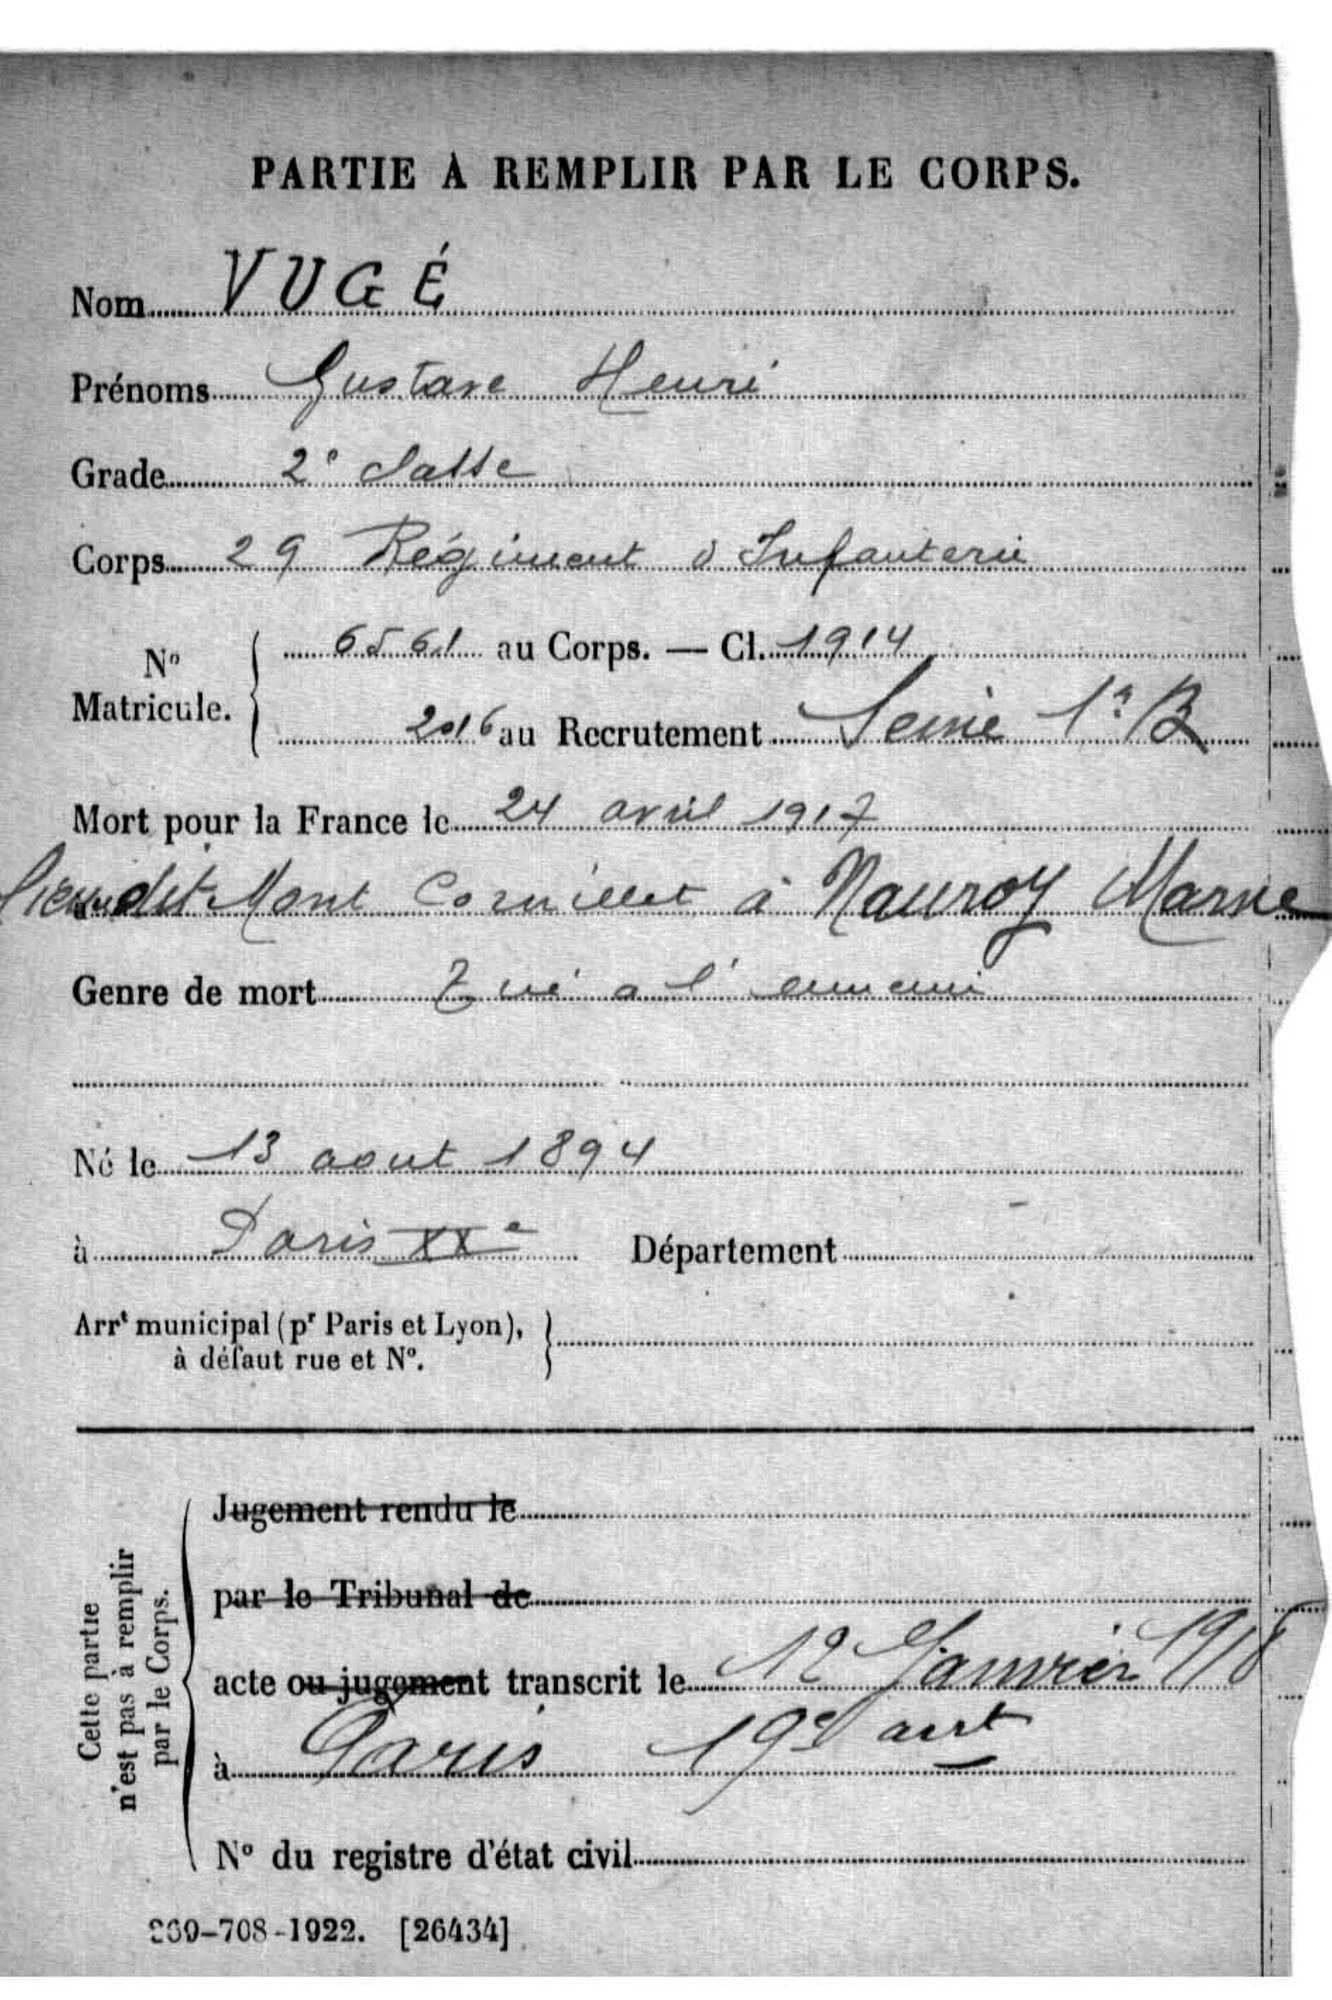 PARTIE À REMPLIR PAR LE CORPS.
Nom VUGÉ
Prénoms Gustave Henri
Grade 2e classe
Corps 29 Régiment d Infanterie
No Matricule. 6561 au Corps. — Cl. 1914
2016 au Recrutement Seine 1er B
Mort pour la France le 24 avril 1917
lieu dit Mont Cornillet à Nauroy Marne
Genre de mort Tué a l'ennemi
Né le 13 aout 1894
à Paris XXe Département
Arrt municipal (pr Paris et Lyon),
à défaut rue et No.
Cette partie
n'est pas à remplir
par le Corps.
Jugement rendu le
par le Tribunal de
acte ou jugement transcrit le 12 Janvier 1918
à Paris 19e arrt
No du registre d'état civil
269-708-1922. [26434]